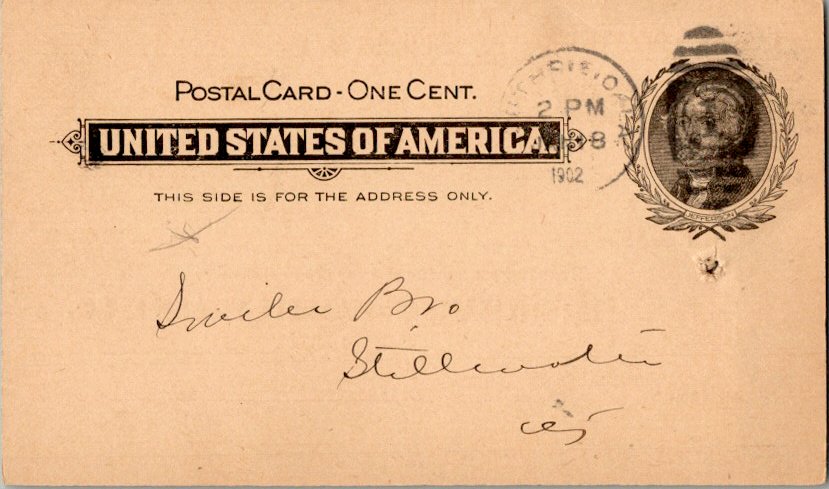 POSTAL CARD - ONE CENT.
UNITED STATES OF AMERICA.
THIS SIDE IS FOR THE ADDRESS ONLY.
2 PM
8
1902
JEFFERSON
Bro
Stillwater